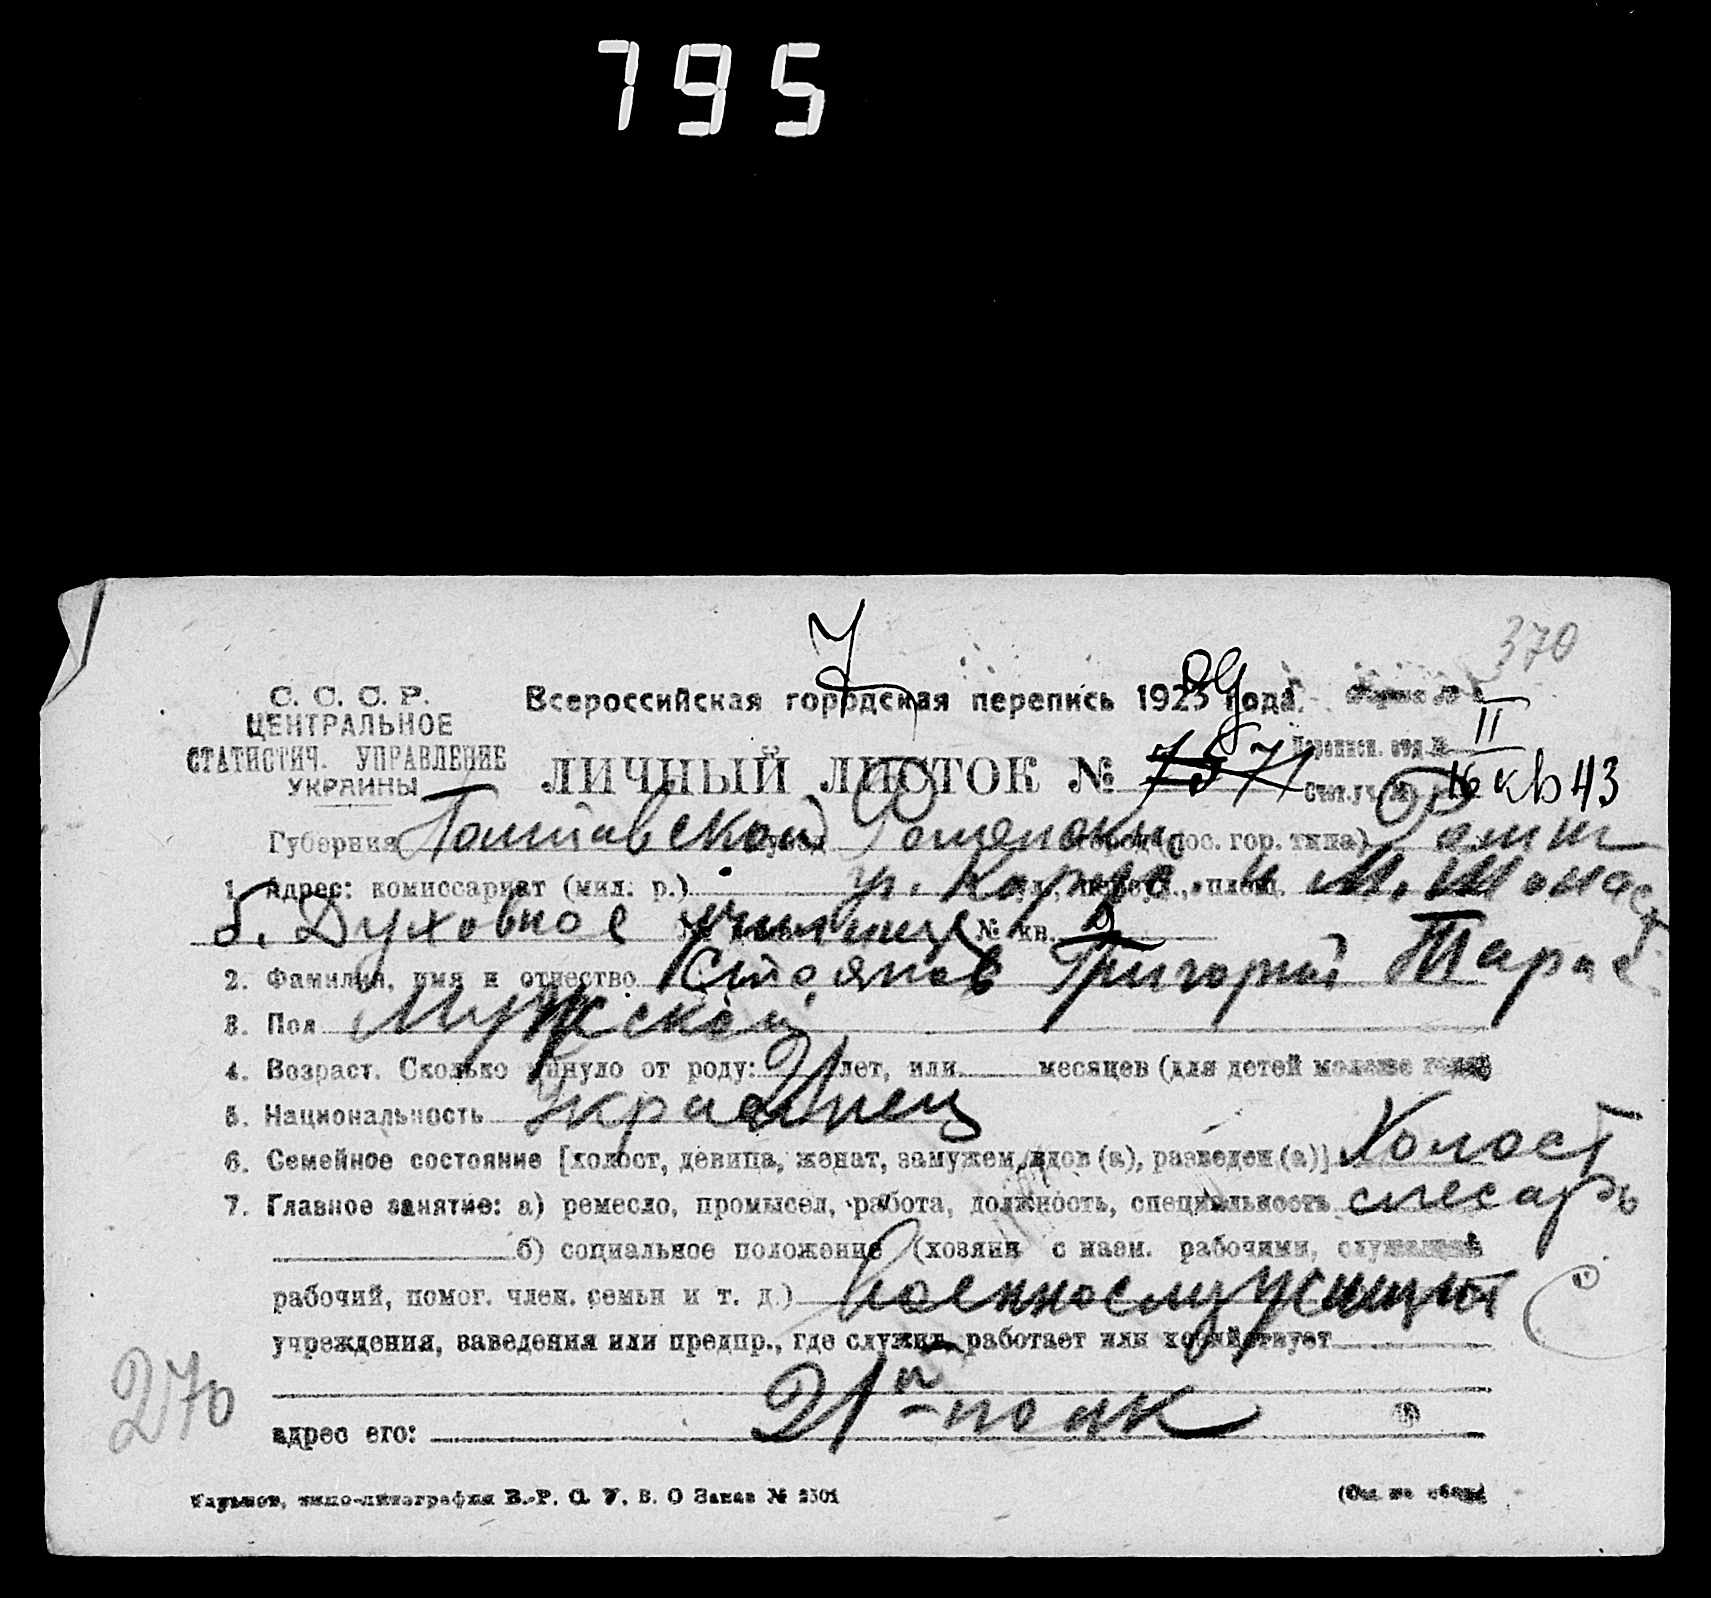 795
370
С. С. С. Р.
ЦЕНТРАЛЬНОЕ
СТАТИСТИЧ. УПРАВЛЕНИЕ
УКРАИНЫ
Всероссийская городская перепись 1923 года. Форма №
Переписн. отд. № II
ЛИЧНЫЙ ЛИСТОК № Счет. уч. № 16 кв 43
Губерния Полтавской уезд город (пос. гор. типа)
1. Адрес: комиссариат (мил. р.) ул. Карла и М.
б. Духовное училище № кв.
2. Фамилия, имя и отчество Стоянов Григорий Тарас
3. Пол Мужской
4. Возраст. Сколько минуло от роду: 21 лет, или месяцев (для детей моложе года)
5. Национальность Украинец
6. Семейное состояние [холост, девица, женат, замужем, вдов (а), разведен (а)] Холост
7. Главное занятие: а) ремесло, промысел, работа, должность, специальность слесарь
б) социальное положение (хозяин с наем. рабочими, служащий
рабочий, помог. член. семьи и т. д.) военнослужащий
учреждения, заведения или предпр., где служит, работает или хозяйствует
21й полк
адрес его:
270
Харьков, типо-литография В. О Заказ № 2301
(См. на обор.)